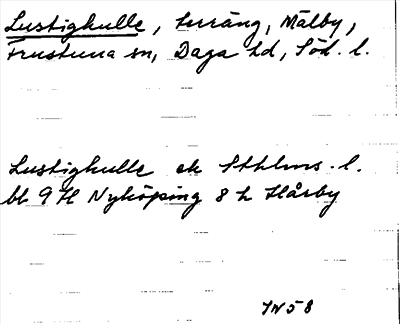 Lustigkulle, terräng, Mälby,
Frustuna sn, Daga hd, Söd. l.
Lustigkulle ek Sthlms. l.
bl 9 H Nyköping 8 h Hårby
IN 58